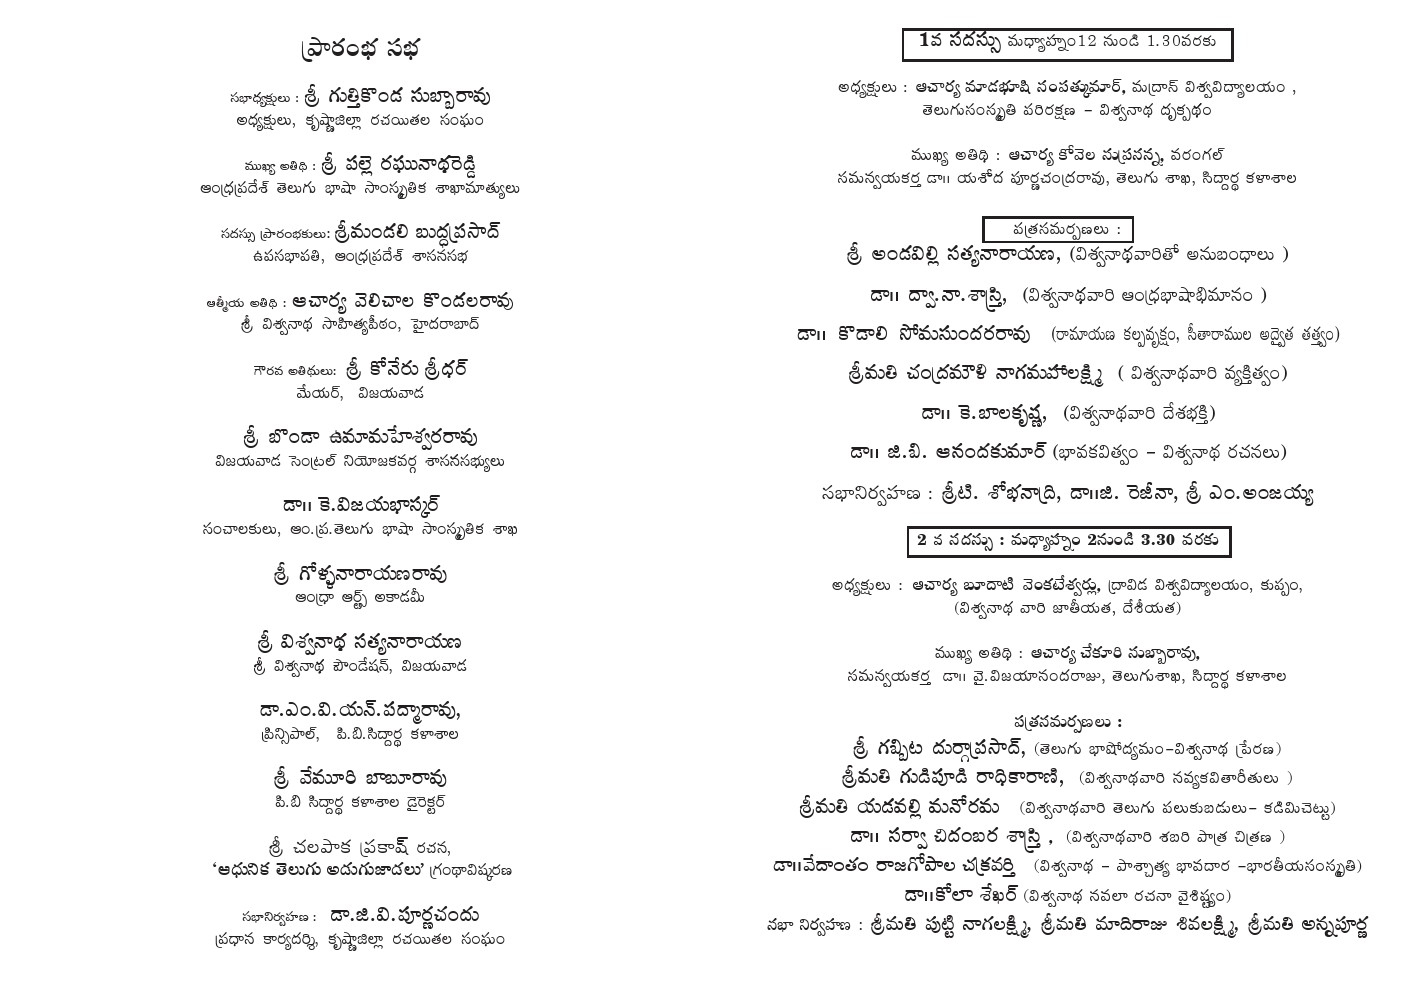 ప్రారంభ సభ
సభాధ్యక్షులు : శ్రీ గుత్తికొండ సుబ్బారావు
అధ్యక్షులు, కృష్ణాజిల్లా రచయితల సంఘం
ముఖ్య అతిథి : శ్రీ పల్లె రఘునాథరెడ్డి
ఆంధ్రప్రదేశ్ తెలుగు భాషా సాంస్కృతిక శాఖామాత్యులు
సదస్సు ప్రారంభకులు: శ్రీమండలి బుద్ధప్రసాద్
ఉపసభాపతి, ఆంధ్రప్రదేశ్ శాసనసభ
ఆత్మీయ అతిథి : ఆచార్య వెలిచాల కొండలరావు
శ్రీ విశ్వనాథ సాహిత్యపీఠం, హైదరాబాద్
గౌరవ అతిథులు: శ్రీ కోనేరు శ్రీధర్
మేయర్, విజయవాడ
శ్రీ బొండా ఉమామహేశ్వరరావు
విజయవాడ సెంట్రల్ నియోజకవర్గ శాసనసభ్యులు
డా॥ కె.విజయభాస్కర్
సంచాలకులు, ఆం.ప్ర.తెలుగు భాషా సాంస్కృతిక శాఖ
శ్రీ గోళ్ళనారాయణరావు
ఆంధ్రా ఆర్ట్స్ అకాడమీ
శ్రీ విశ్వనాథ సత్యనారాయణ
శ్రీ విశ్వనాథ ఫౌండేషన్, విజయవాడ
డా.ఎం.వి.యన్.పద్మారావు,
ప్రిన్సిపాల్, పి.బి.సిద్దార్థ కళాశాల
శ్రీ వేమూరి బాబూరావు
పి.బి సిద్దార్థ కళాశాల డైరెక్టర్
శ్రీ చలపాక ప్రకాష్ రచన,
‘ఆధునిక తెలుగు అడుగుజాడలు’ గ్రంథావిష్కరణ
సభానిర్వహణ : డా.జి.వి.పూర్ణచందు
ప్రధాన కార్యదర్శి, కృష్ణాజిల్లా రచయితల సంఘం
1వ సదస్సు మధ్యాహ్నం12 నుండి 1.30వరకు
అధ్యక్షులు : ఆచార్య మాడభూషి సంపత్కుమార్, మద్రాస్ విశ్వవిద్యాలయం ,
తెలుగుసంస్కృతి పరిరక్షణ - విశ్వనాథ దృక్పథం
ముఖ్య అతిథి : ఆచార్య కోవెల సుప్రసన్న, వరంగల్
సమన్వయకర్త డా॥ యశోద పూర్ణచంద్రరావు, తెలుగు శాఖ, సిద్దార్థ కళాశాల
పత్రసమర్పణలు :
శ్రీ అండవిల్లి సత్యనారాయణ, (విశ్వనాథవారితో అనుబంధాలు )
డా॥ ద్వా.నా.శాస్త్రి, (విశ్వనాథవారి ఆంధ్రభాషాభిమానం )
డా॥ కొడాలి సోమసుందరరావు (రామాయణ కల్పవృక్షం, సీతారాముల అద్వైత తత్త్వం)
శ్రీమతి చంద్రమౌళి నాగమహాలక్ష్మి ( విశ్వనాథవారి వ్యక్తిత్వం)
డా॥ కె.బాలకృష్ణ, (విశ్వనాథవారి దేశభక్తి)
డా॥ జి.బి. ఆనందకుమార్ (భావకవిత్వం - విశ్వనాథ రచనలు)
సభానిర్వహణ : శ్రీటి. శోభనాద్రి, డా॥జి. రెజీనా, శ్రీ ఎం.అంజయ్య
2 వ సదస్సు : మధ్యాహ్నం 2నుండి 3.30 వరకు
అధ్యక్షులు : ఆచార్య బూదాటి వెంకటేశ్వర్లు, ద్రావిడ విశ్వవిద్యాలయం, కుప్పం,
(విశ్వనాథ వారి జాతీయత, దేశీయత)
ముఖ్య అతిథి : ఆచార్య చేకూరి సుబ్బారావు,
సమన్వయకర్త డా॥ వై.విజయానందరాజు, తెలుగుశాఖ, సిద్దార్థ కళాశాల
పత్రసమర్పణలు :
శ్రీ గబ్బిట దుర్గాప్రసాద్, (తెలుగు భాషోద్యమం-విశ్వనాథ ప్రేరణ)
శ్రీమతి గుడిపూడి రాధికారాణి, (విశ్వనాథవారి నవ్యకవితారీతులు )
శ్రీమతి యడవల్లి మనోరమ (విశ్వనాథవారి తెలుగు పలుకుబడులు- కడిమిచెట్టు)
డా॥ సర్వా చిదంబర శాస్త్రి , (విశ్వనాథవారి శబరి పాత్ర చిత్రణ )
డా॥వేదాంతం రాజగోపాల చక్రవర్తి (విశ్వనాథ - పాశ్చాత్య భావదార -భారతీయసంస్కృతి)
డా॥కోలా శేఖర్ (విశ్వనాథ నవలా రచనా వైశిష్ట్యం)
సభా నిర్వహణ : శ్రీమతి పుట్టి నాగలక్ష్మి, శ్రీమతి మాదిరాజు శివలక్ష్మి, శ్రీమతి అన్నపూర్ణ